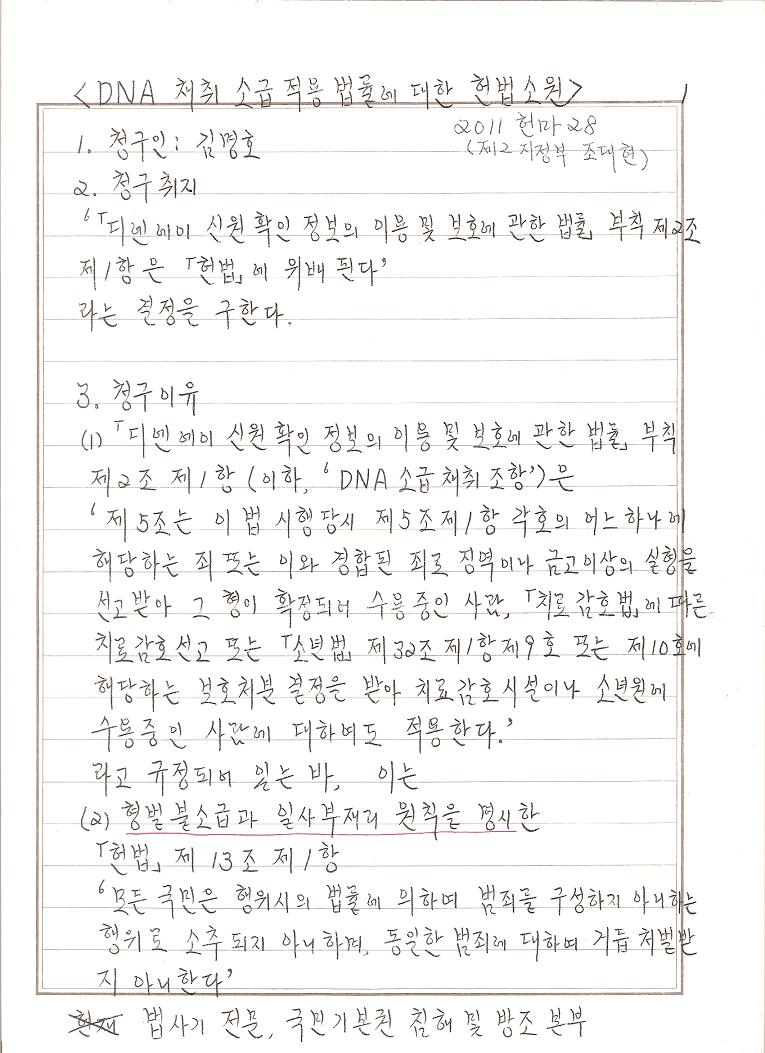 <DNA 채취 소급 적용 법률에 대한 헌법소원> 1
1. 청구인: 김명호
2011 헌마 28
(제2 지정부 조대현)
2. 청구취지
'「디엔에이 신원 확인 정보의 이용 및 보호에 관한 법률」 부칙 제2조
제1항 은 「헌법」에 위배 된다'
라는 결정을 구한다.
3. 청구이유
(1) 「디엔에이 신원 확인 정보의 이용 및 보호에 관한 법률」 부칙
제2조 제1항 (이하, 'DNA 소급 채취 조항')은
'제5조는 이 법 시행당시 제5조제1항 각호의 어느 하나에
해당하는 죄 또는 이와 경합된 죄로 징역이나 금고이상의 실형을
선고받아 그 형이 확정되어 수용중인 사람, 「치료감호법」에 따른
치료감호선고 또는 「소년법」 제32조제1항제9호 또는 제10호에
해당하는 보호처분 결정을 받아 치료감호시설이나 소년원에
수용중인 사람에 대하여도 적용한다.'
라고 규정되어 있는 바, 이는
(2) 형벌불소급과 일사부재리 원칙을 명시한
「헌법」 제13조 제1항
'모든 국민은 행위시의 법률에 의하여 범죄를 구성하지 아니하는
행위로 소추되지 아니하며, 동일한 범죄에 대하여 거듭 처벌받
지 아니한다'
헌재 법사기 전문, 국민기본권 침해 및 방조 본부